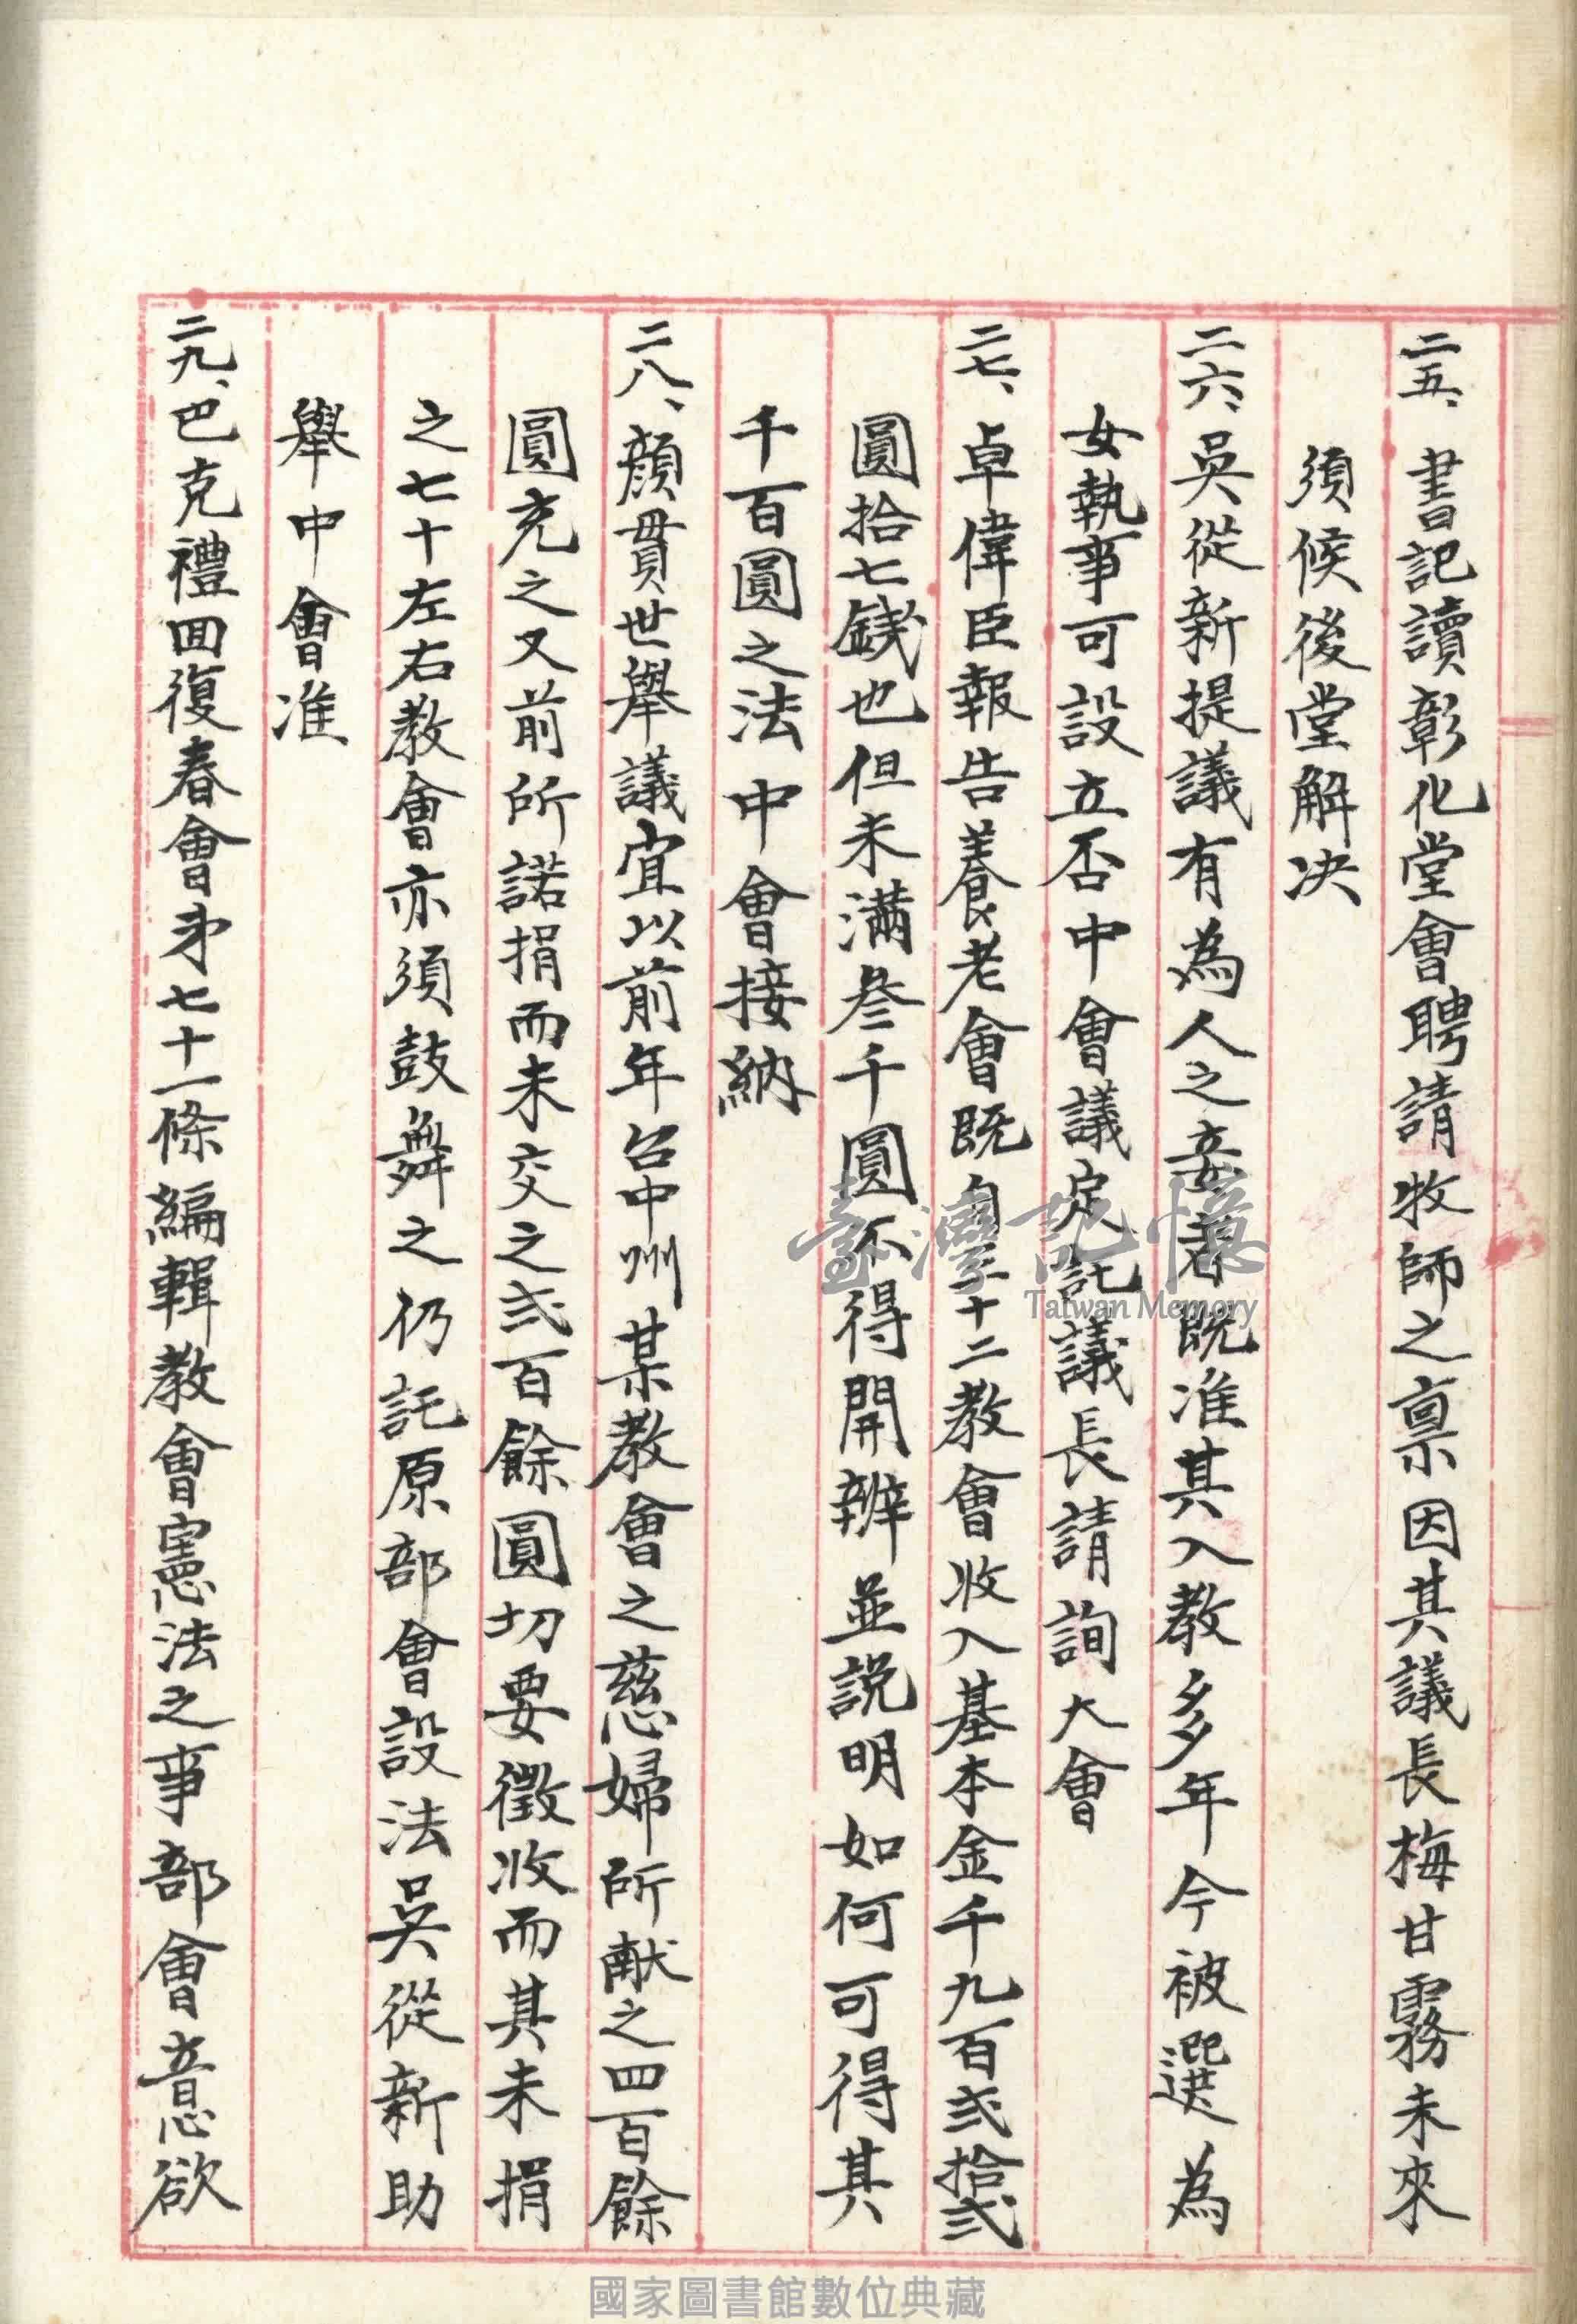 二五、書記讀彰化堂會聘請牧師之禀因其議長梅甘霧未來
須候後堂解决
二六、吳從新提議有為人之妾者既准其入教多年今被選為
女執事可設立否中會議定託議長請詢大會
二七、卓偉臣報告養老會既自三十二教會收入基本金千九百弍拾弍
圓拾七錢也但未滿叁千圓不得開辦並説明如何可得其
千百圓之法中會接納
二八、顏貫世舉議宜以前年台中州某教會之慈婦所献之四百餘
圓充之又前所諾捐而未交之弍百餘圓切要徵收而其未捐
之七十左右教會亦須鼓舞之仍託原部會設法吳從新助
舉中會准
二九、巴克禮回復春會第七十一條編輯教會憲法之事部會意欲
臺灣記憶
Taiwan Memory
國家圖書館數位典藏